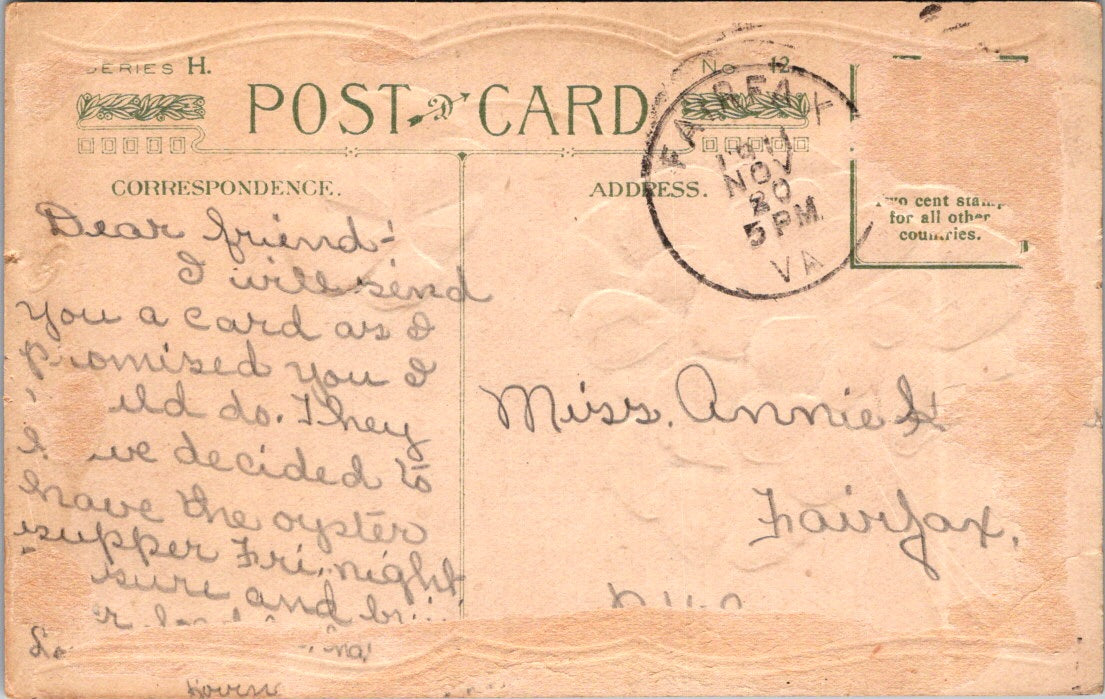 SERIES H.
No. 12
POST CARD
CORRESPONDENCE.
ADDRESS.
FAIRFAX
1911
NOV
20
5 PM
VA
Two cent stamp
for all other
countries.
Dear friend-
I will send
you a card as I
promised you I
do. They
have decided to
have the oyster
supper Fri. night
sure and
Miss. Annie
Fairfax,